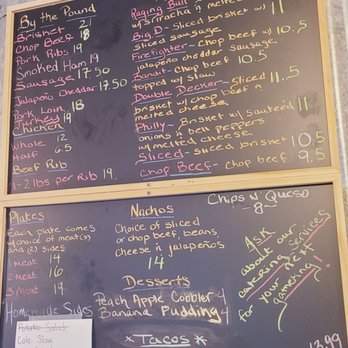 By the Pound
Brisket 21
Chop Beef 18
Pork Ribs 19
Smoked Ham 19
Sausage 17.50
Jalapeño Cheddar 17.50
Pork Loin 18
Turkey 19
Chicken
Whole 12
Half 6.5
Beef Rib
1-2 lbs per Rib 19
Raging Bull
w/sriracha n melted
Big D- Sliced brisket w/ 11
sliced sausage
Firefighter- Chop beef w/ 10.5
jalapeño cheddar sausage
Bandit- Chop beef 10.5
topped w/slaw
Double Decker- Sliced 11.5
brisket w/ chop beef n
melted cheese
Philly- Brisket w/ sauteed 11
onions n bell peppers
w/melted cheese
Sliced- Sliced brisket 10.5
Chop Beef- Chop beef 9.5
Plates
Each plate comes
w/choice of meat(s)
and (2) sides
1 meat 14
2 meat 16
3 meat 19
Homemade Sides
Potato Salad
Cole Slaw
Nachos
Choice of sliced
or chop beef, beans,
cheese n jalapeños
14
Desserts
Peach Apple Cobbler 4
Banana Pudding 4
*Tacos*
Chips N' Queso
-8-
Ask
about our
catering services
for your next
gathering!
13.99